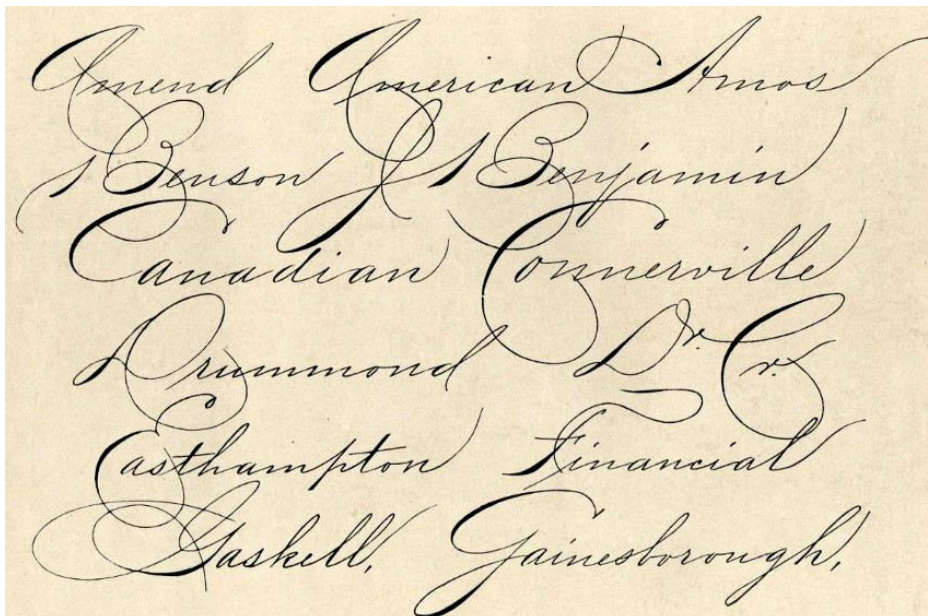 Amend American Amos
Benson J. Benjamin
Canadian Connerville
Drummond Dr. Cr.
Easthampton Financial
Gaskell, Gainesborough,